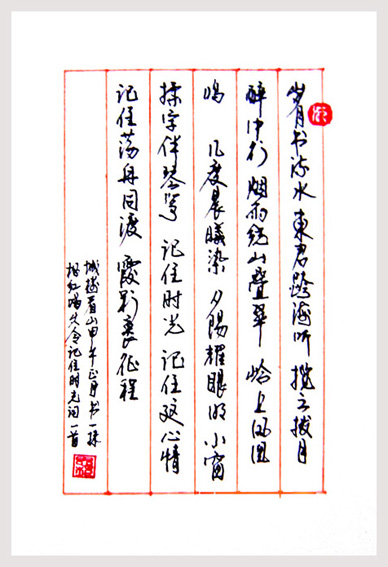 岁月书流水 東君跨海听 揽云拨月
醉中行 烟雨绕山叠翠 岭上凤凰
鸣 几度晨曦染 夕陽耀眼明 小窗
揉字伴琴筝 记住时光 记住这心情
记住荡舟同渡 霞彩裹征程
城楼眉山甲午正月书一抹
红 令记住时光词一首